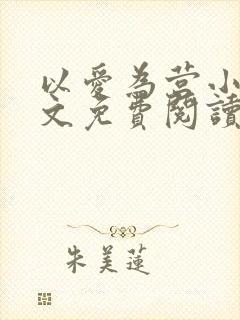 以愛為营小
文免費閱讀
朱美蓮